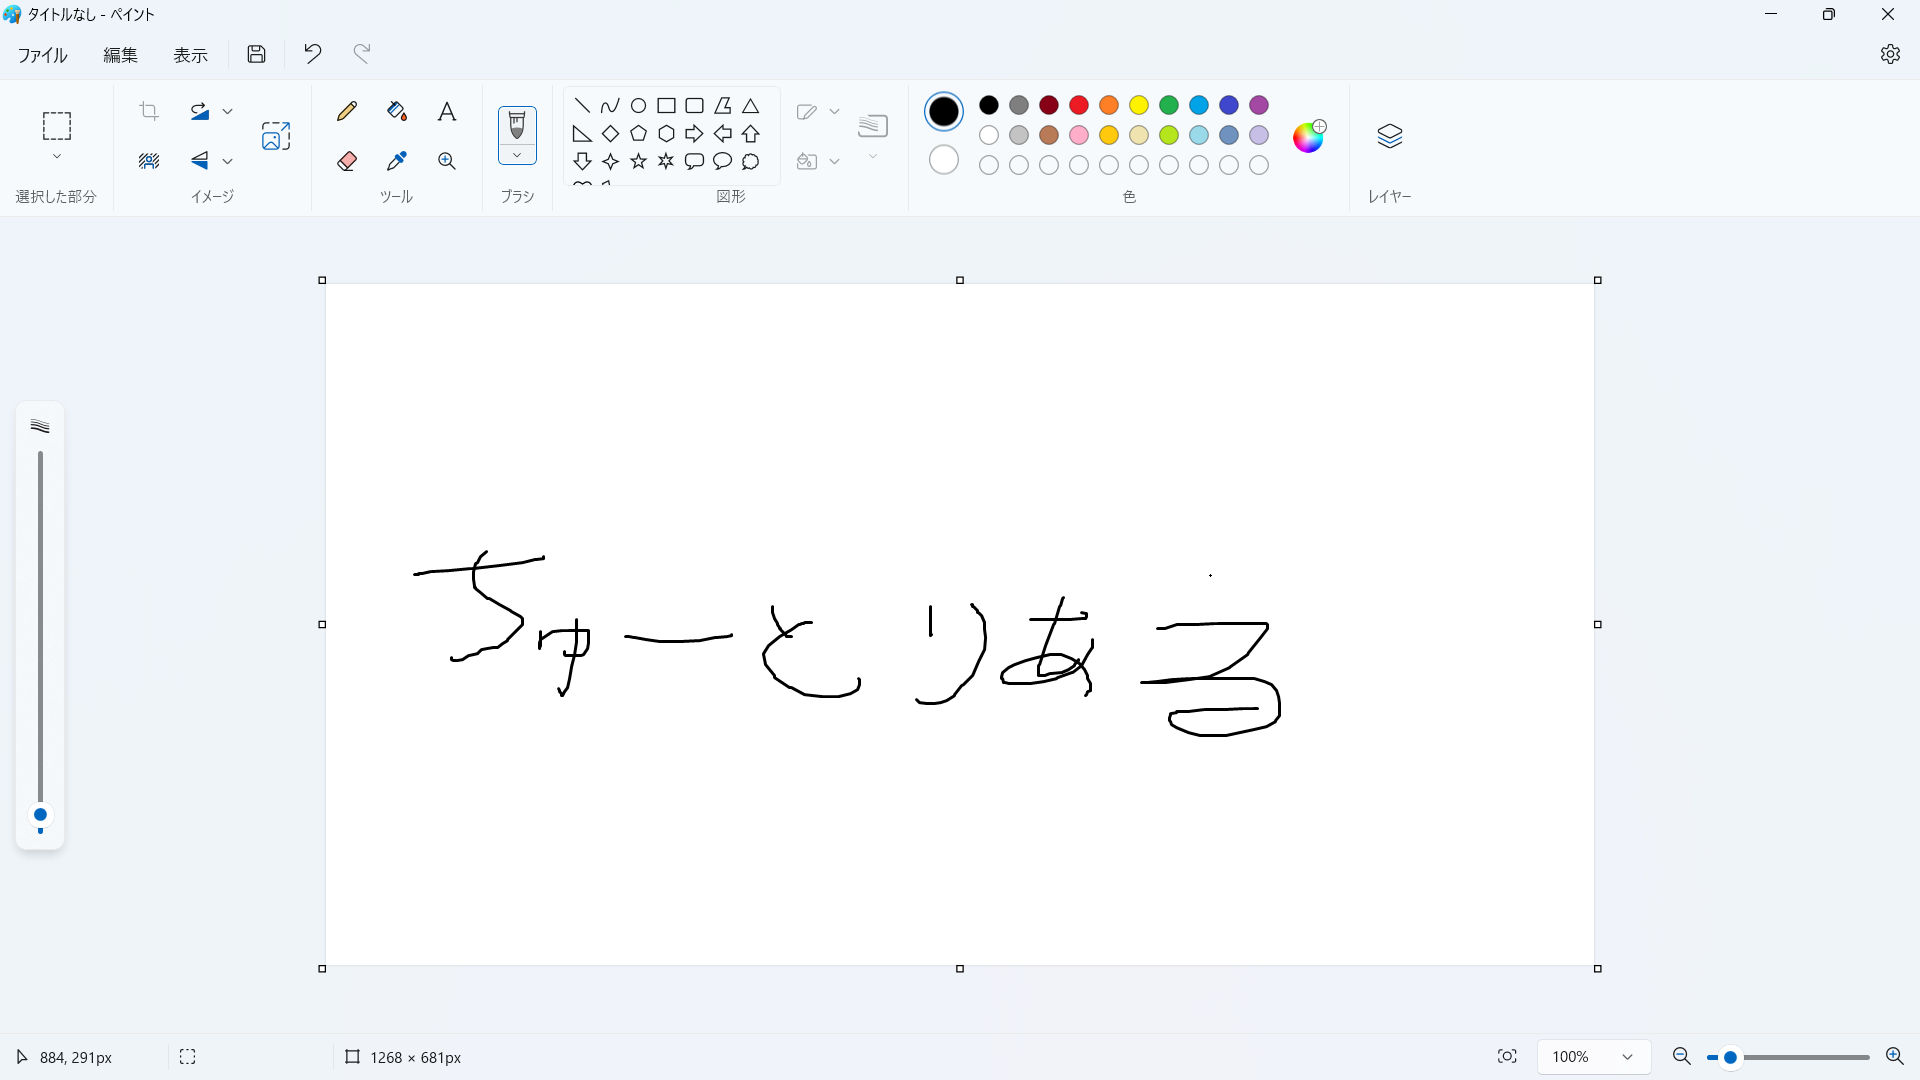 タイトルなし - ペイント
ファイル 編集 表示
選択した部分 イメージ ツール ブラシ 図形 色 レイヤー
ちゅーとりある
884, 291px 1268 × 681px 100%